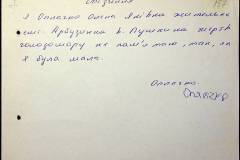 Свідчення
Я Опалчко Олена Яківна жителька
смт. Арбузинка в. Пушкіна жертв
голодомору не пам'ятаю, так, як
я була мала.
Опалчко.